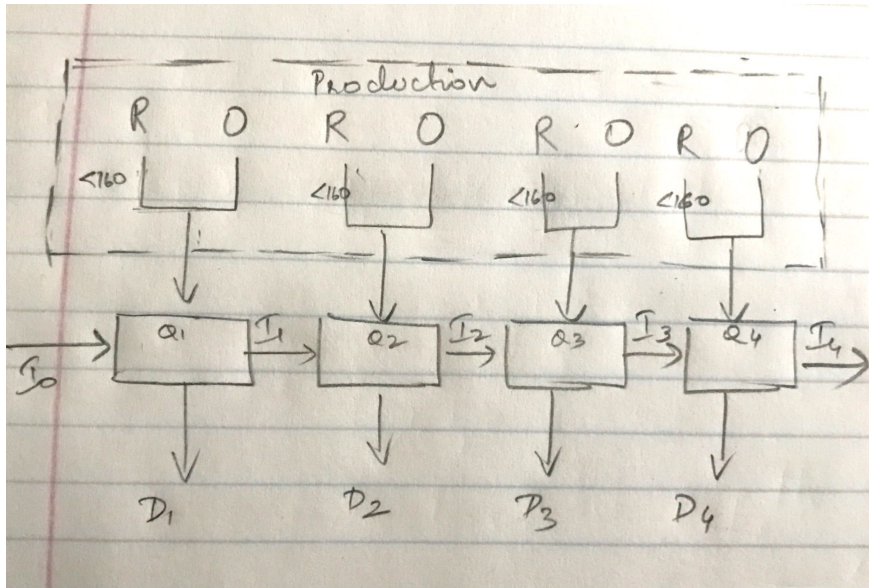 Production
R O R O R O R O
<160 <160 <160 <160
Q1 I1 Q2 I2 Q3 I3 Q4 I4
I0
D1 D2 D3 D4